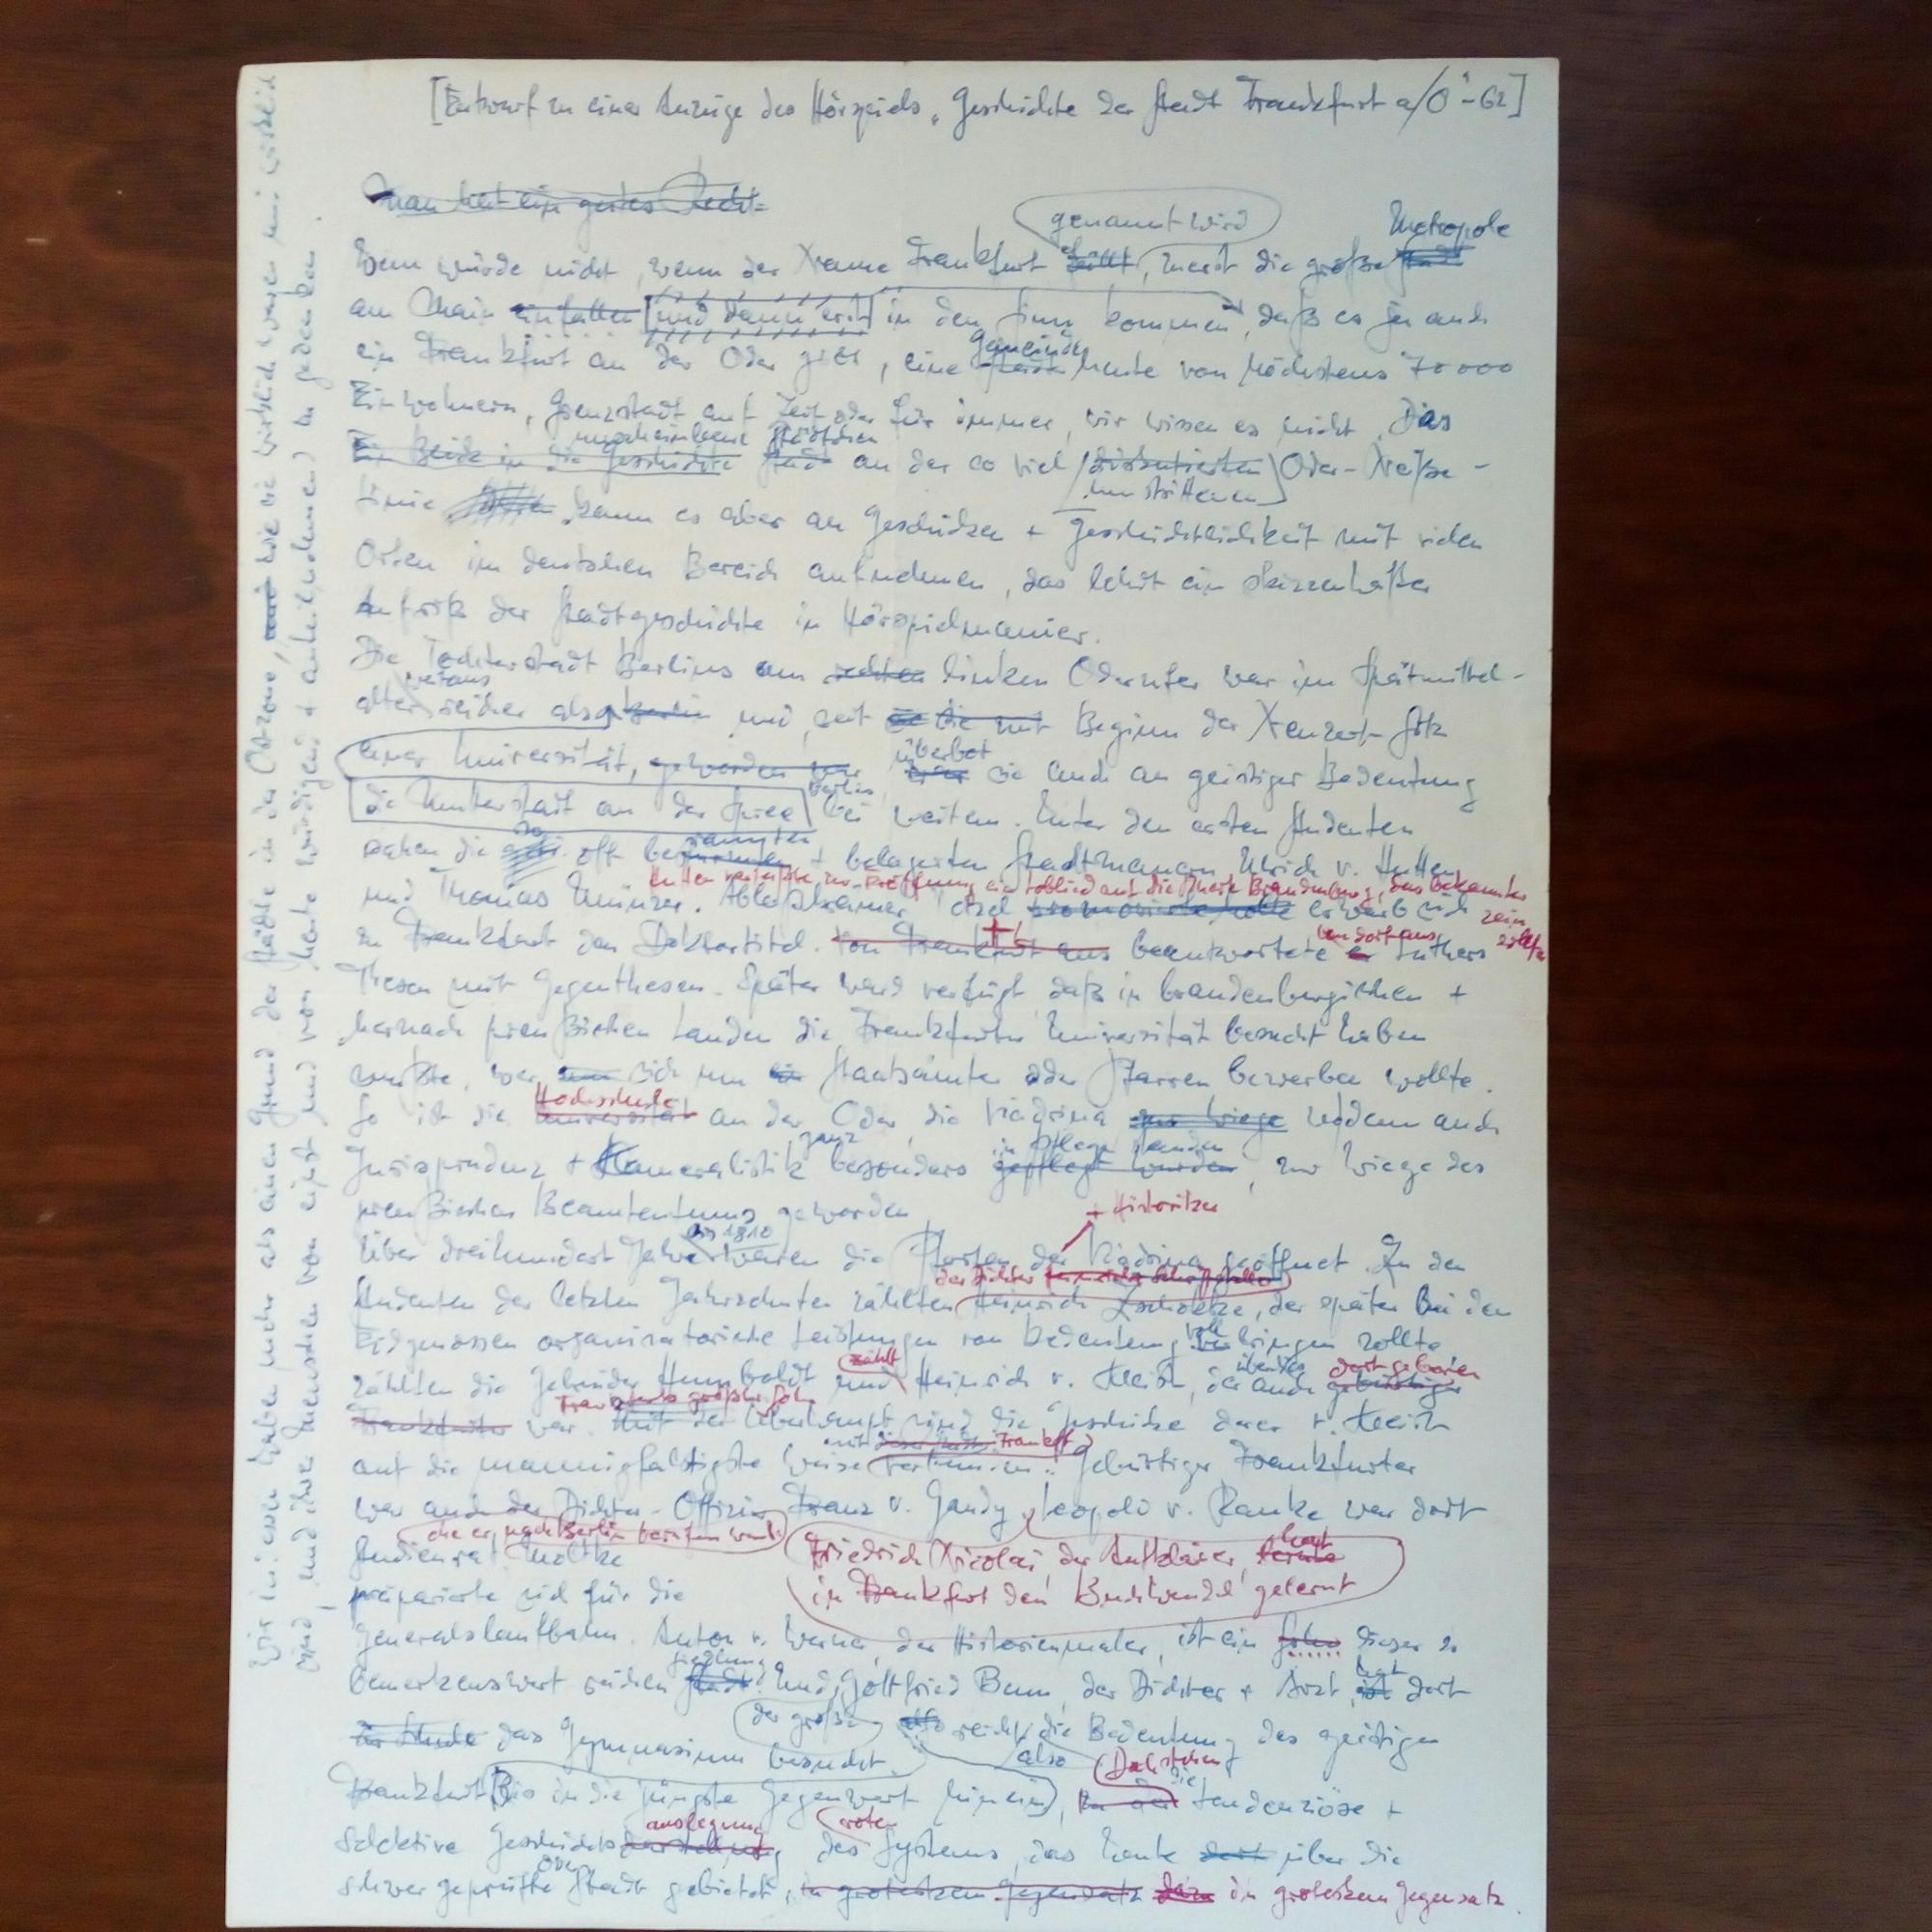 [Entwurf zu einer Anzeige des Hörspiels „Geschichte der Stadt Frankfurt a/O“ - 62]
Man hört ein gutes Recht:
genannt wird Metropole
Wem würde nicht, wenn der Name Frankfurt fällt, zuerst die größre Stadt
am Main einfallen und dann erst in den Sinn kommen, daß es ja auch
Gemeinde
ein Frankfurt an der Oder gibt, eine Stadt heute von höchstens 70 000
Einwohnern, Grenzstadt auf Zeit oder für immer, wir wissen es nicht. Das
unscheinbare Städtchen
in die Geschichte Stadt an der so viel diskutierten Oder-Neiße-
umstrittenen
Linie kann es aber an Geschicken + Geschichtlichkeit mit vielen
Orten im deutschen Bereich aufnehmen, das lehrt ein skizzenhafter
Aufriß der Stadtgeschichte in Hörspielmanier.
Die Tochterstadt Berlins am rechten linken Oderufer war im Spätmittel-
weitaus
alter reicher als Berlin und seit Beginn der Neuzeit Sitz
überbot
einer Universität, geworden war, sie auch an geistiger Bedeutung
Berlin,
die Mutterstadt an der Spree bei weitem. Unter den ersten Studenten
rannten
sahen die so oft be + belagerten Stadtmauern Ulrich v. Hutten
Hutten verfaßte zur Eröffnung ein Loblied auf die Mark Brandenburg, das bekannter sein sollte
und Thomas Münzer. Ablaßkrämer Tetzel erwarb sich
von dort aus
in Frankfurt den Doktortitel. Von Frankfurt aus beantwortete er Luthers
Thesen mit Gegenthesen. Später ward verfügt, daß in brandenburgischen +
hernach preußischen Landen die Frankfurter Universität besucht haben
mußte, wer sich um Staatsämter oder Pfarren bewerben wollte.
Hochschule
So ist die Universität an der Oder, die Viadrina zur Wiege indem auch
ganz in Pflege standen
Jurisprudenz + Kameralistik besonders gepflegt wurden, zur Wiege des
preußischen Beamtentums geworden
+ Historiker
bis 1810
Über dreihundert Jahre waren die Pforten der Viadrina geöffnet. Zu den
der Dichter
Studenten der letzten Jahrzehnte zählten Heinrich Zschokke, der später bei den
voll
Eidgenossen organisatorische Leistungen von Bedeutung bringen sollte
zählt überdies dort geboren
zählten die Gebrüder Humboldt und Heinrich v. Kleist, der auch gebürtiger
Frankfurts größter Sohn
Frankfurter war. Mit der Oderstadt sind die Geschicke derer v. Kleist
mit Frankft
auf die mannigfaltigste Weise verbunden. Gebürtiger Frankfurter
war auch der Dichter-Offizier Franz v. Gaudy, Leopold v. Ranke war dort
ehe er nach Berlin berufen ward.
Studienrat. Moltke
Friedrich Nicolai, der Aufklärer, lernte hat
in Frankfurt den Buchhandel gelernt
präparierte sich für die
Generalslaufbahn. Anton v. Werner, der Historienmaler, ist ein Sohn dieser so
Siedlung
bemerkenswert reichen Stadt. Und Gottfried Benn, der Dichter + Arzt, hat dort
der große
die Schule das Gymnasium besucht. also reicht die Bedeutung des geistigen
also Dabei stehen
Frankfurt Bis in die jüngste Gegenwart hinein, die tendenziöse +
auslegung roten
selektive Geschichtsdarstellung des Systems, das heute dort über die
Oder
schwer geprüfte Stadt gebietet, in groteskem Gegensatz dazu in groteskem Gegensatz.
Wir in haben mehr als einen Grund der Städte in der Ostzone, wie sie wirklich waren und wirklich
sind, und ihrer Menschen von einst und von heute würdigend + anteilnehmend zu gedenken.